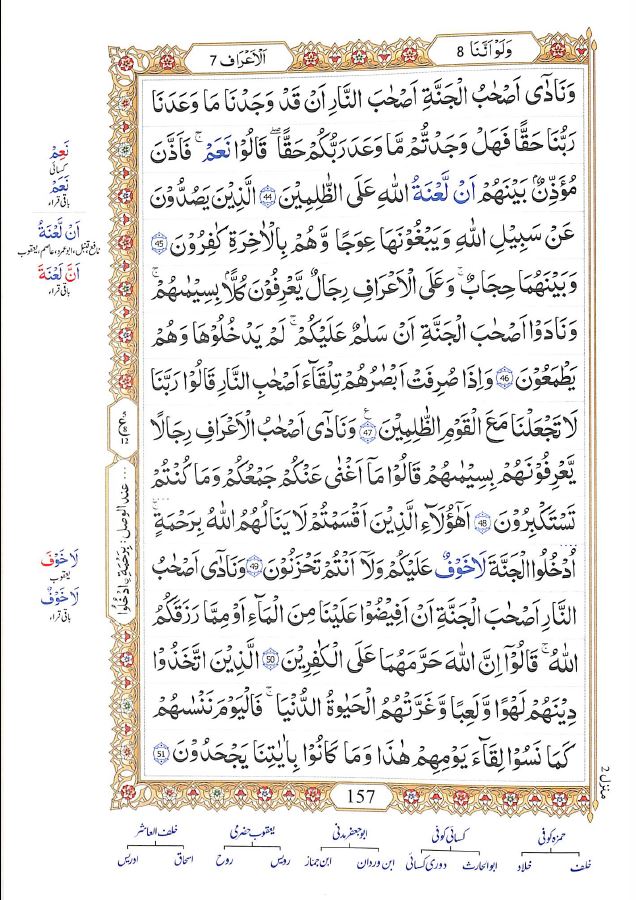 وَلَوْ اَنَّنَا 8
اَلْاَعْرَاف 7
وَنَادٰٓى اَصْحٰبُ الْجَنَّةِ اَصْحٰبَ النَّارِ اَنْ قَدْ وَجَدْنَا مَا وَعَدَنَا
رَبُّنَا حَقًّا فَهَلْ وَجَدْتُّمْ مَّا وَعَدَ رَبُّكُمْ حَقًّا ۖ قَالُوْا نَعَمْ ۚ فَاَذَّنَ
مُؤَذِّنٌۢ بَيْنَهُمْ اَنْ لَّعْنَةُ اللّٰهِ عَلَى الظّٰلِمِيْنَ 44 الَّذِيْنَ يَصُدُّوْنَ
عَنْ سَبِيْلِ اللّٰهِ وَيَبْغُوْنَهَا عِوَجًا وَّهُمْ بِالْاٰخِرَةِ كٰفِرُوْنَ 45
وَبَيْنَهُمَا حِجَابٌ ۚ وَعَلَى الْاَعْرَافِ رِجَالٌ يَّعْرِفُوْنَ كُلًّاۢ بِسِيْمٰىهُمْ ۚ
وَنَادَوْا اَصْحٰبَ الْجَنَّةِ اَنْ سَلٰمٌ عَلَيْكُمْ ۚ لَمْ يَدْخُلُوْهَا وَهُمْ
يَطْمَعُوْنَ 46 وَاِذَا صُرِفَتْ اَبْصَارُهُمْ تِلْقَآءَ اَصْحٰبِ النَّارِ قَالُوْا رَبَّنَا
لَا تَجْعَلْنَا مَعَ الْقَوْمِ الظّٰلِمِيْنَ 47 وَنَادٰٓى اَصْحٰبُ الْاَعْرَافِ رِجَالًا
يَّعْرِفُوْنَهُمْ بِسِيْمٰىهُمْ قَالُوْا مَآ اَغْنٰى عَنْكُمْ جَمْعُكُمْ وَمَا كُنْتُمْ
تَسْتَكْبِرُوْنَ 48 اَهٰٓؤُلَآءِ الَّذِيْنَ اَقْسَمْتُمْ لَا يَنَالُهُمُ اللّٰهُ بِرَحْمَةٍ ۚ
اُدْخُلُوا الْجَنَّةَ لَا خَوْفٌ عَلَيْكُمْ وَلَآ اَنْتُمْ تَحْزَنُوْنَ 49 وَنَادٰٓى اَصْحٰبُ
النَّارِ اَصْحٰبَ الْجَنَّةِ اَنْ اَفِيْضُوْا عَلَيْنَا مِنَ الْمَآءِ اَوْ مِمَّا رَزَقَكُمُ
اللّٰهُ ۚ قَالُوْٓا اِنَّ اللّٰهَ حَرَّمَهُمَا عَلَى الْكٰفِرِيْنَ 50 الَّذِيْنَ اتَّخَذُوْا
دِيْنَهُمْ لَهْوًا وَّلَعِبًا وَّغَرَّتْهُمُ الْحَيٰوةُ الدُّنْيَا ۚ فَالْيَوْمَ نَنْسٰىهُمْ
كَمَا نَسُوْا لِقَآءَ يَوْمِهِمْ هٰذَا وَمَا كَانُوْا بِاٰيٰتِنَا يَجْحَدُوْنَ 51
نَعِمْ
کسائی
نَعَمْ
باقی قراء
اَنْ لَّعْنَةُ
نافع، قنبل، ابوعمرو، عاصم، یعقوب
اَنَّ لَعْنَةَ
باقی قراء
عند الوصل: بِرَحْمَةِ ۨادْخُلُوا
لَا خَوْفَ
یعقوب
لَا خَوْفٌ
باقی قراء
منزل 2
157
حمزہ کوفی
کسائی کوفی
ابوجعفر مدنی
یعقوب حضرمی
خلف العاشر
خلف
خلاد
ابوالحارث
دوری کسائی
ابن وردان
ابن جماز
رویس
روح
اسحاق
ادریس